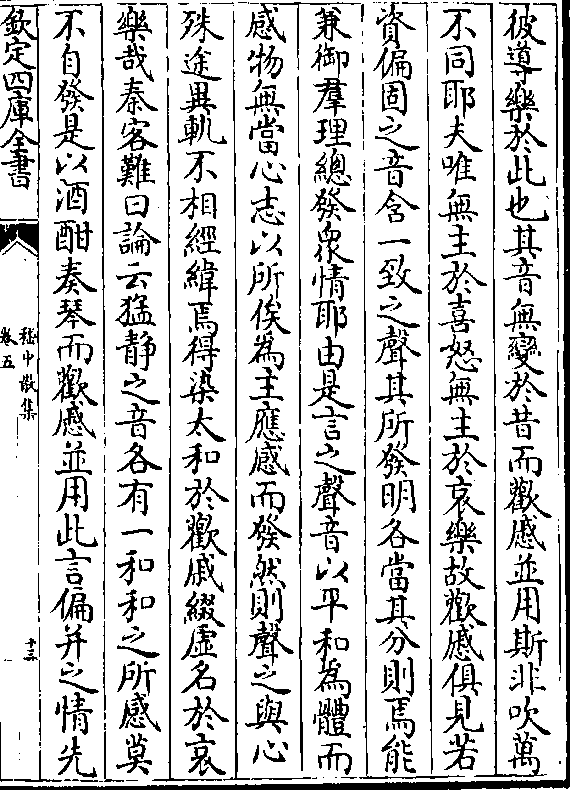 彼導樂於此也其音無變於昔而歡慼並用斯非吹萬
不同耶夫唯無主於喜怒無主於哀樂故歡慼俱見若
資偏固之音含一致之聲其所發明各當其分則焉能
兼御羣理總發衆情耶由是言之聲音以平和為體而
感物無當心志以所俟為主應感而發然則聲之與心
殊途異軌不相經緯焉得染太和於歡慼綴虛名於哀
樂哉秦客難曰論云猛静之音各有一和和之所感莫
不自發是以酒酣奏琴而歡慼並用此言偏并之情先
欽定四庫全書
嵇中散集
卷五
十三